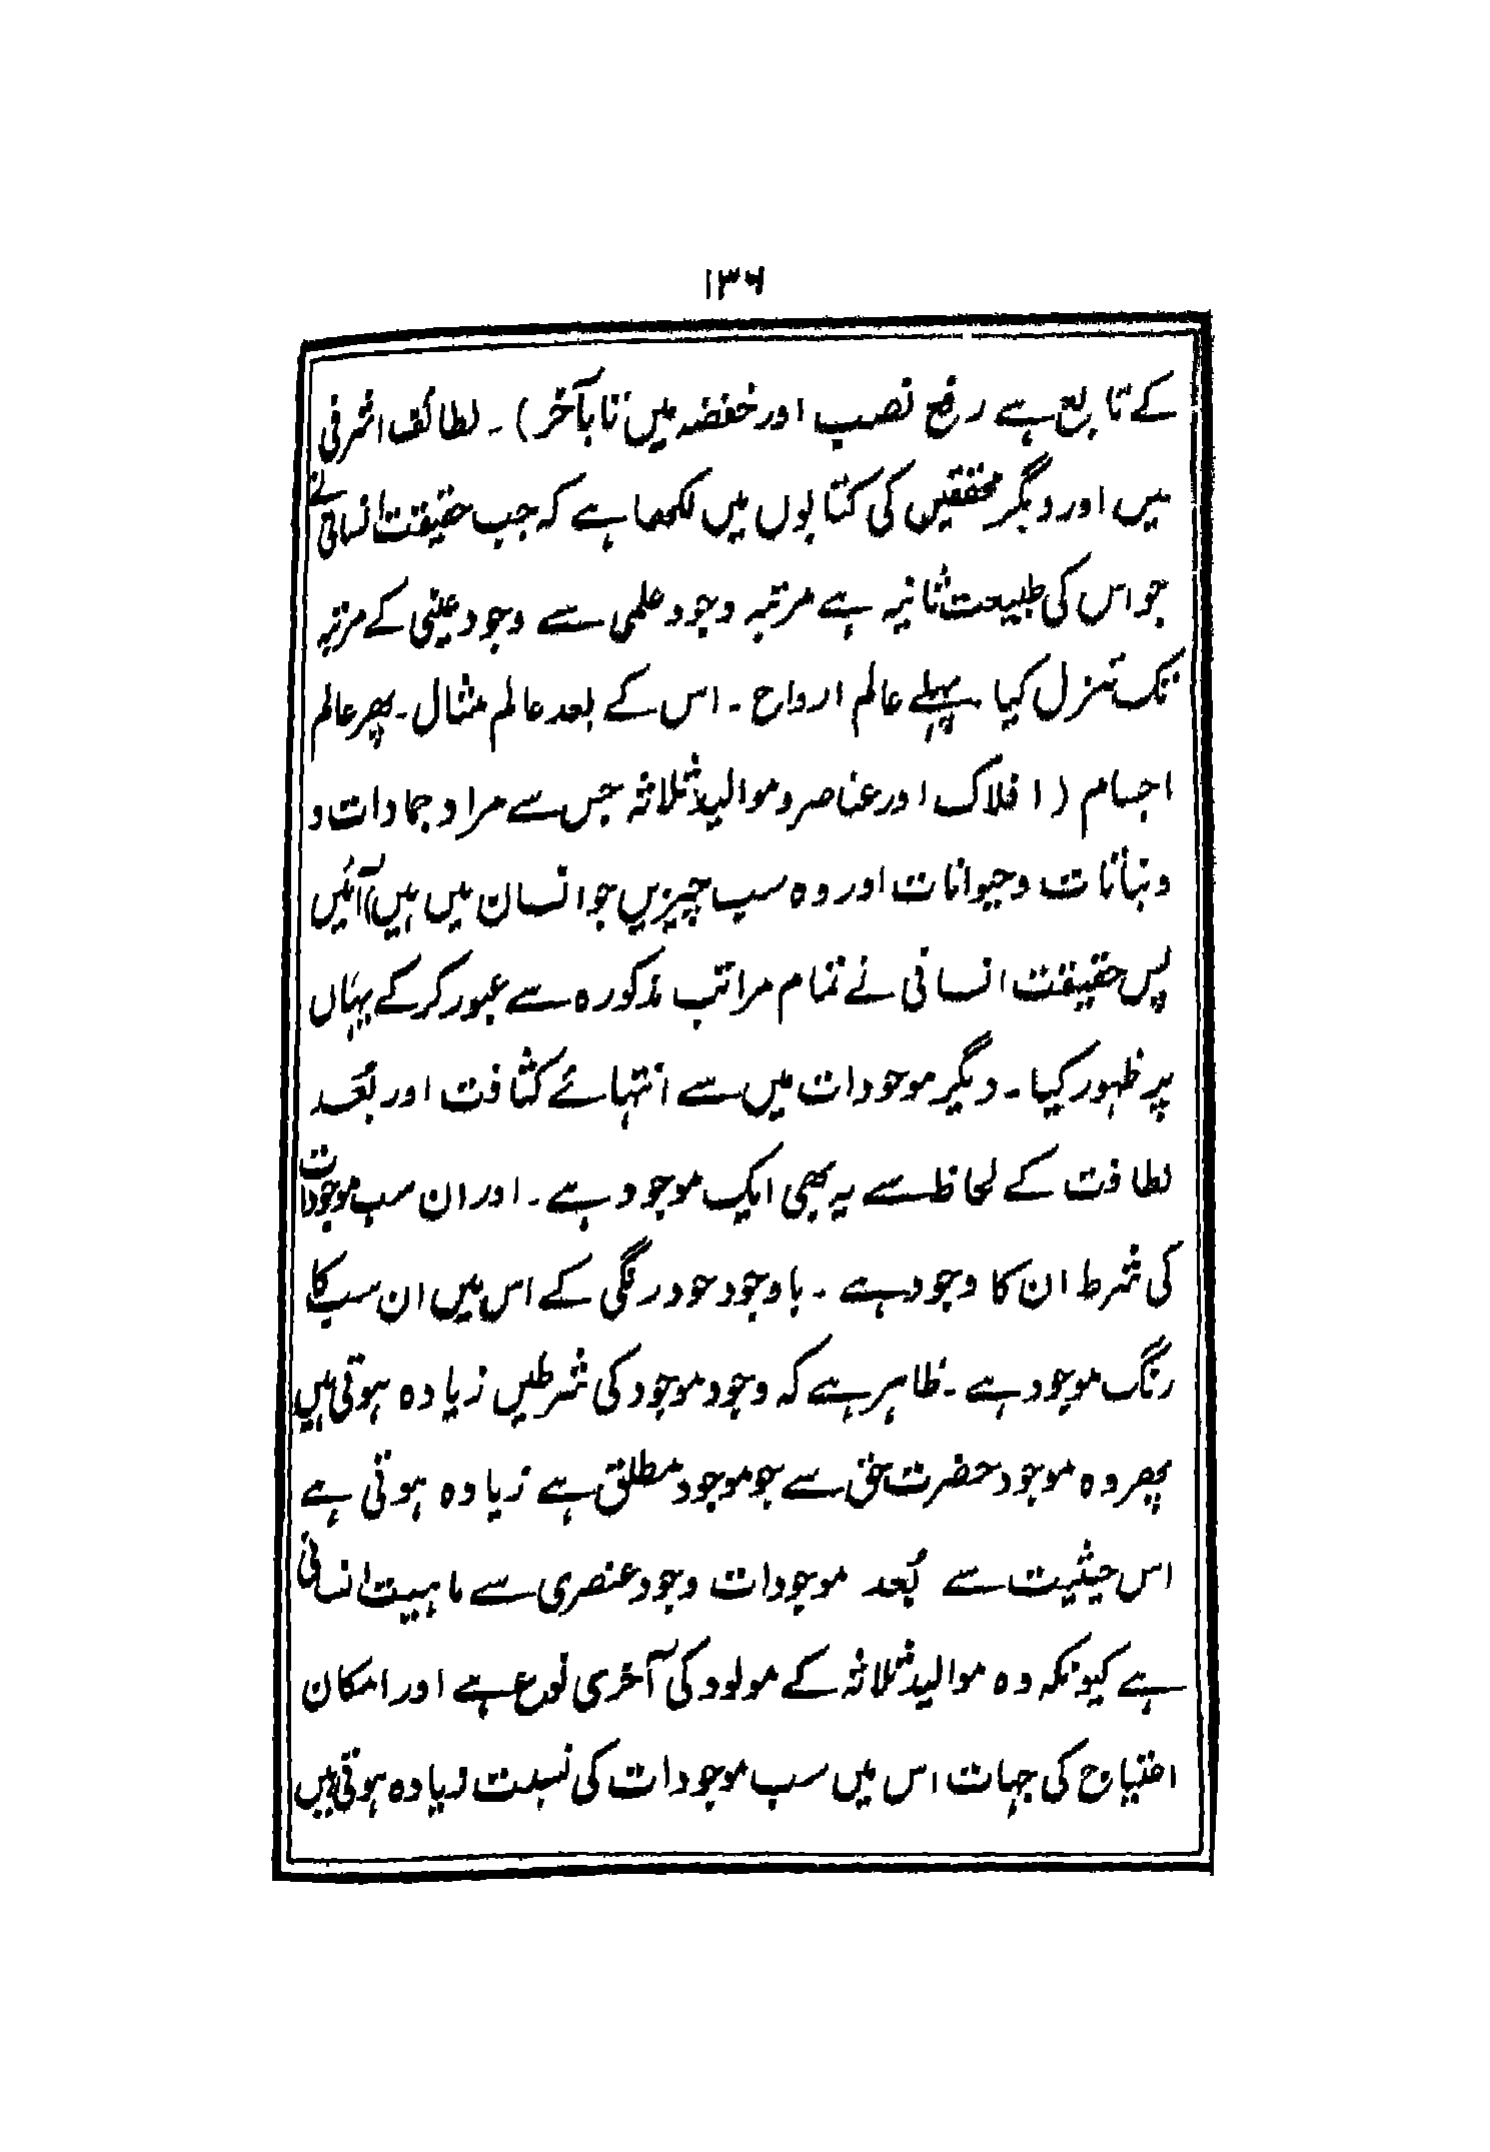 ۱۳۶
کے تابع ہے رفع نصب اور خفضہ میں تا بآخر) ۔ لطائف اشرفی
میں اور دیگر محققین کی کتابوں میں لکھا ہے کہ جب حقیقت انسانی نے
جو اس کی طبیعت ثانیہ ہے مرتبہ وجود علمی سے وجود عینی کے مرتبہ
تک تنزل کیا ۔ پہلے عالم ارواح ۔ اس کے بعد عالم مثال ۔ پھر عالم
اجسام (افلاک اور عناصر و موالید ثلاثہ جس سے مراد جمادات و
و نباتات و حیوانات اور وہ سب چیزیں جو انسان میں ہیں) آئیں
پس حقیقت انسانی نے تمام مراتب مذکورہ سے عبور کر کے یہاں
پر ظہور کیا ۔ دیگر موجودات میں سے انتہائے کثافت اور بُعد
لطافت کے لحاظ سے یہ بھی ایک موجود ہے ۔ اور ان سب موجودات
کی شرط ان کا وجود ہے ۔ باوجود خود رنگی کے اس میں ان سب کا
رنگ موجود ہے ۔ ظاہر ہے کہ وجود موجود کی شرطیں زیادہ ہوتی ہیں
پھر وہ موجود حضرت حق سے جو موجود مطلق ہے زیادہ ہوتی ہے
اس حیثیت سے بُعد موجودات وجود عنصری سے ماہیت انسانی
ہے کیونکہ وہ موالید ثلاثہ کے مولود کی آخری نوع ہے اور امکان
احتیاج کی جہات اس میں سب موجودات کی نسبت زیادہ ہوتی ہیں